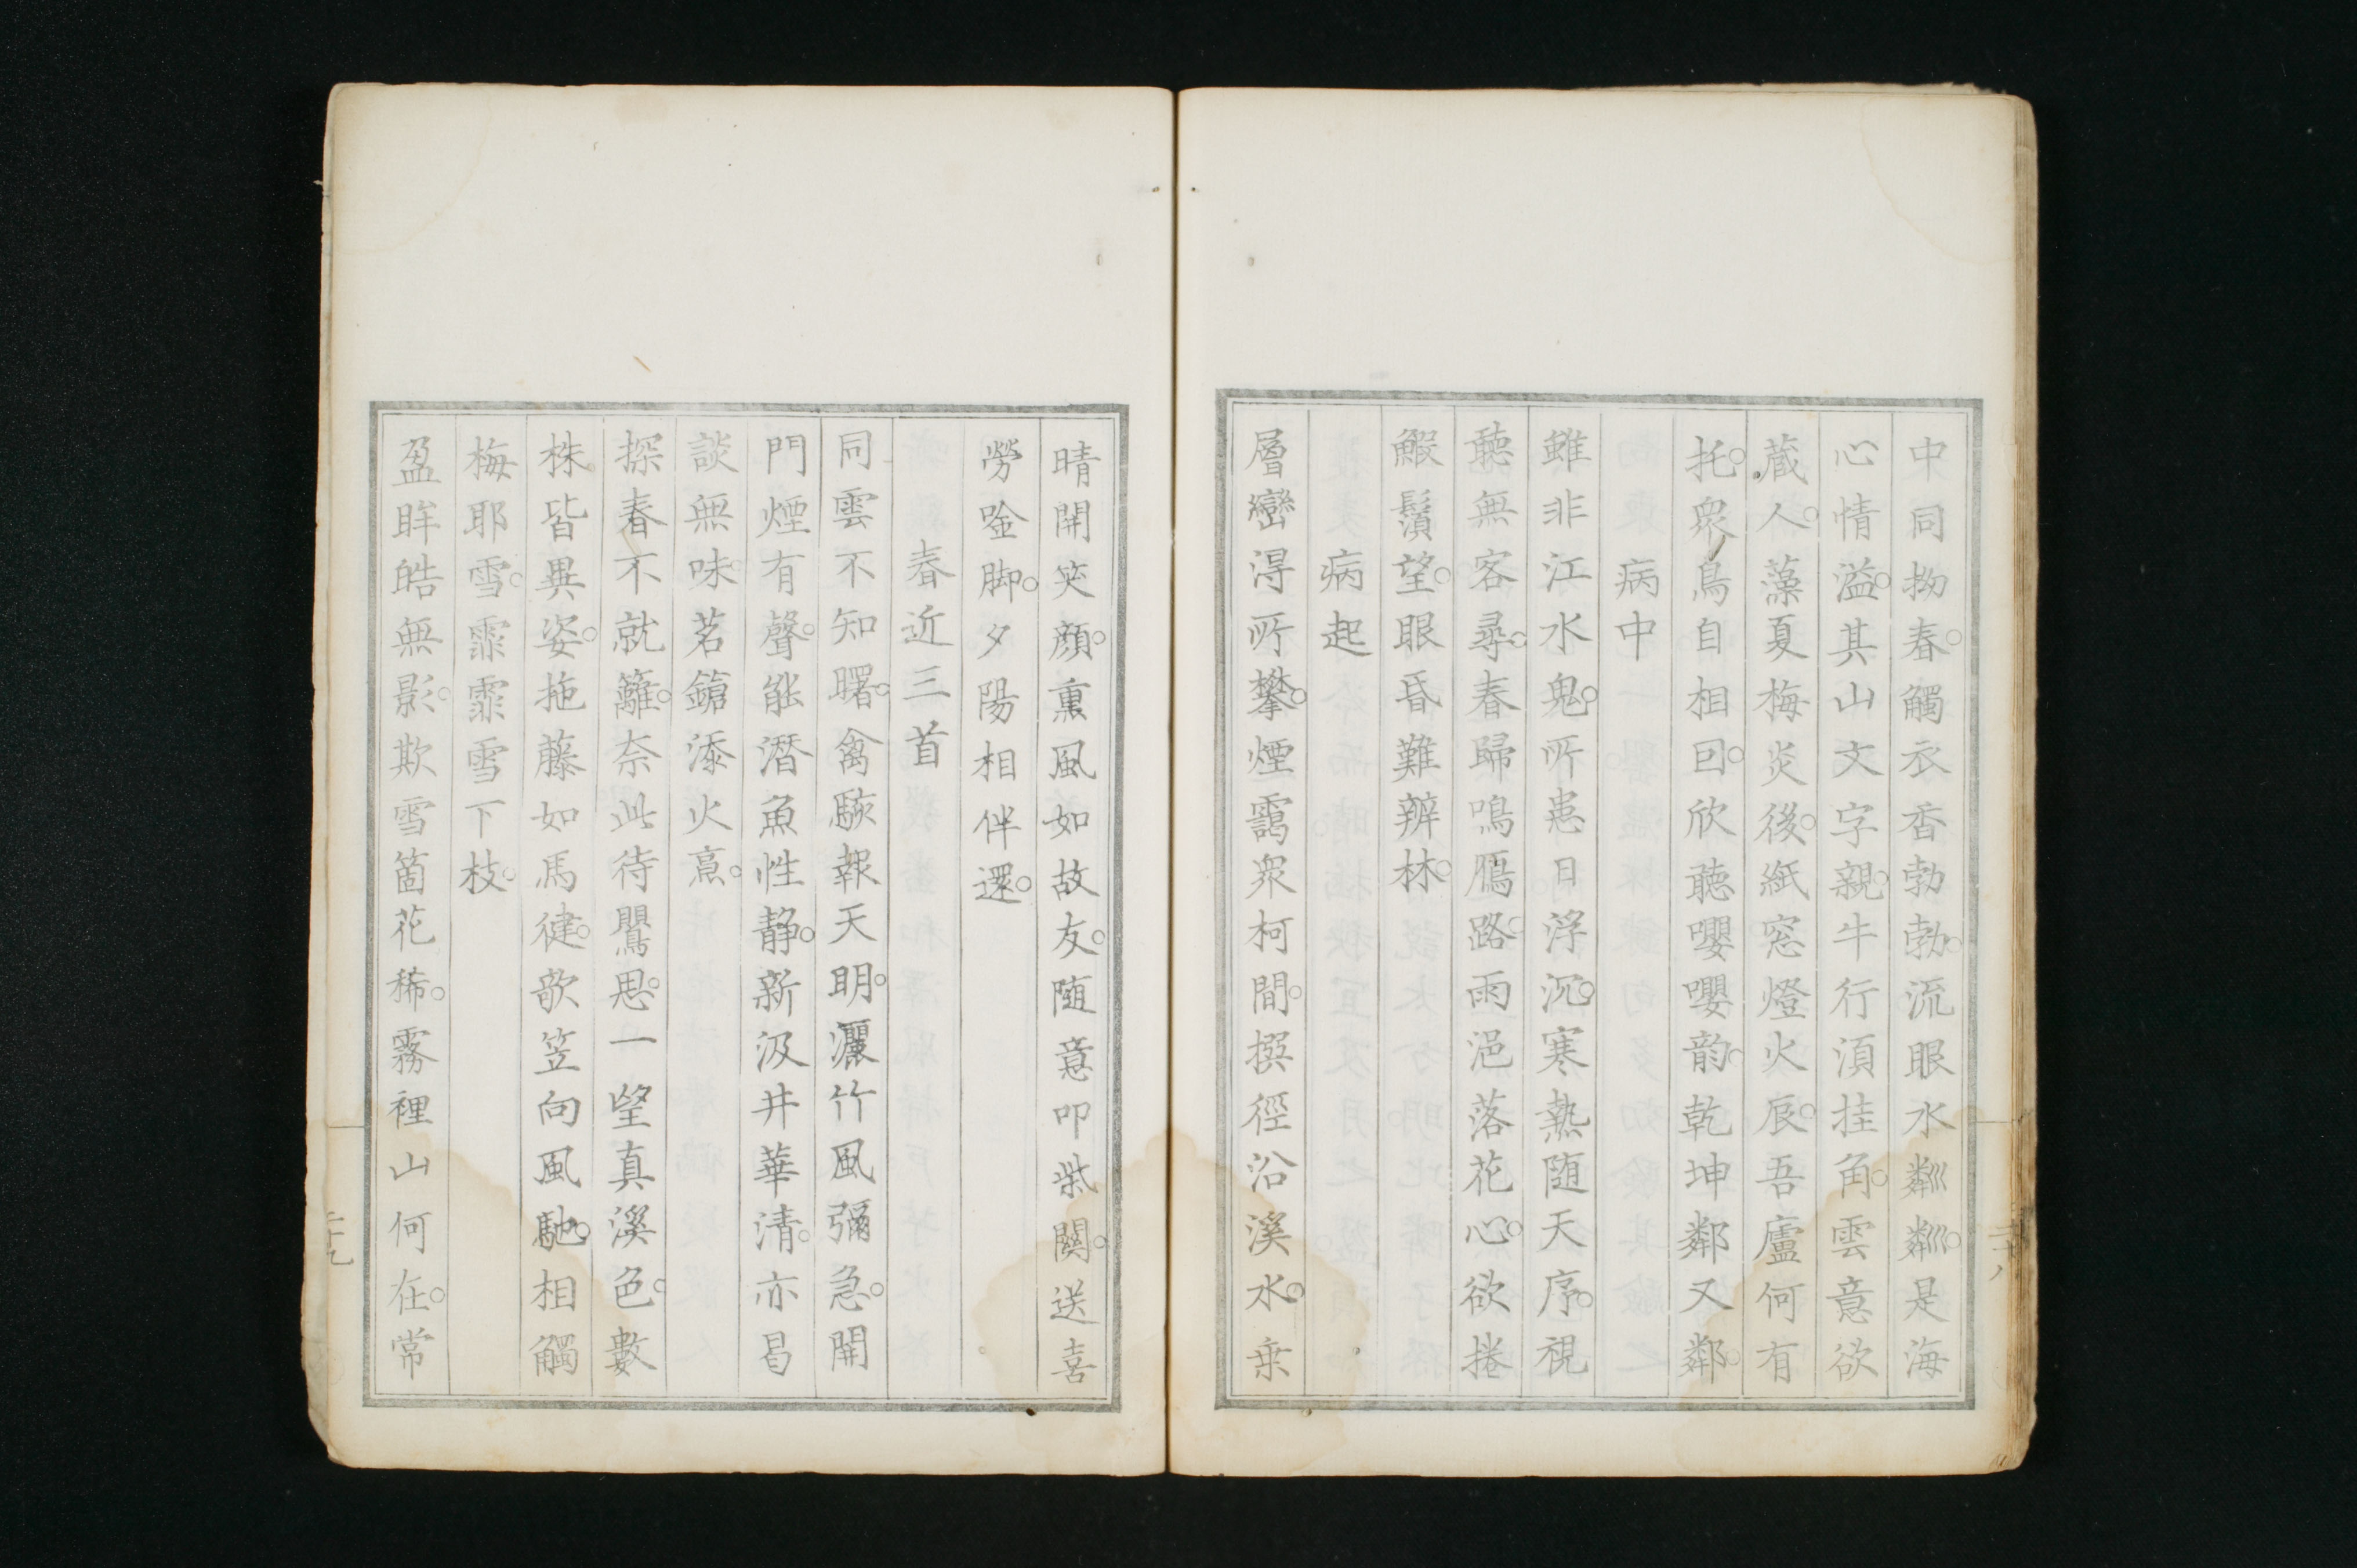 中同拗春。觸衣香勃勃。流眼水粼粼。是海
心情溢。其山文字親。牛行須挂角。雲意欲
藏人。藻夏梅炎後。紙窓燈火辰。吾廬何有
托。衆鳥自相回。欣聽嚶嚶韵。乾坤鄰又鄰。
病中
雖非江水鬼。所患日浮沉。寒熱随天序。視
聽無客尋。春歸鳴鴈路。雨浥落花心。欲捲
鰕鬚望。眼昏難辨林。
病起
層巒淂所攀。煙靄衆柯間。撰徑沿溪水。乗
晴開笑顔。熏風如故友。随意叩柴關。送喜
勞唫脚。夕陽相伴還。
春近三首
同雲不知曙。禽駭報天明。灑竹風彌急。開
門煙有聲。能潛魚性静。新汲井華清。亦曷
談無味。茗鎗添火烹。
探春不就籬。奈此待鸎思。一望真溪色。數
株皆異姿。拖藤如馬徤。欹笠向風馳。相觸
梅耶雪。霏霏雪下枝。
盈眸皓無影。欺雪箇花稀。霧裡山何在。常